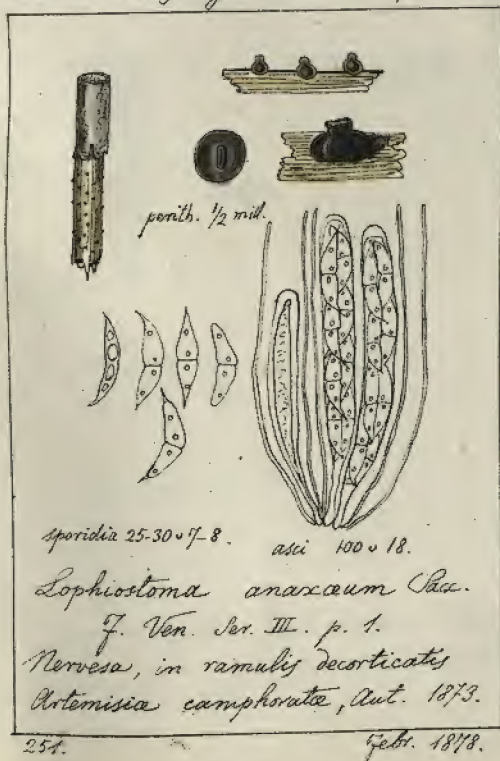 perith. 1/2 mill.
sporidia 25-30 v 7-8.
asci 100 v 18.
Lophiostoma anaxæum Sacc.
F. Ven. Ser. III. p. 1.
Nervesa, in ramulis decorticatis
Artemisiæ camphoratæ, Aut. 1873.
251. Febr. 1878.